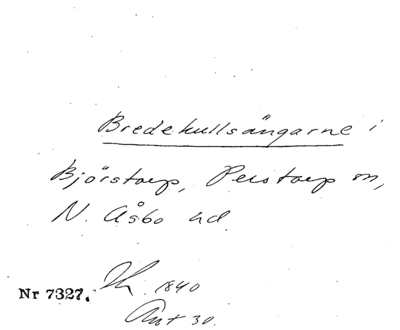 Bredekullsängarne i
Björstorp, Perstorp sn,
N. Åsbo hd.
Nr 7327. 1840
Ant 30.